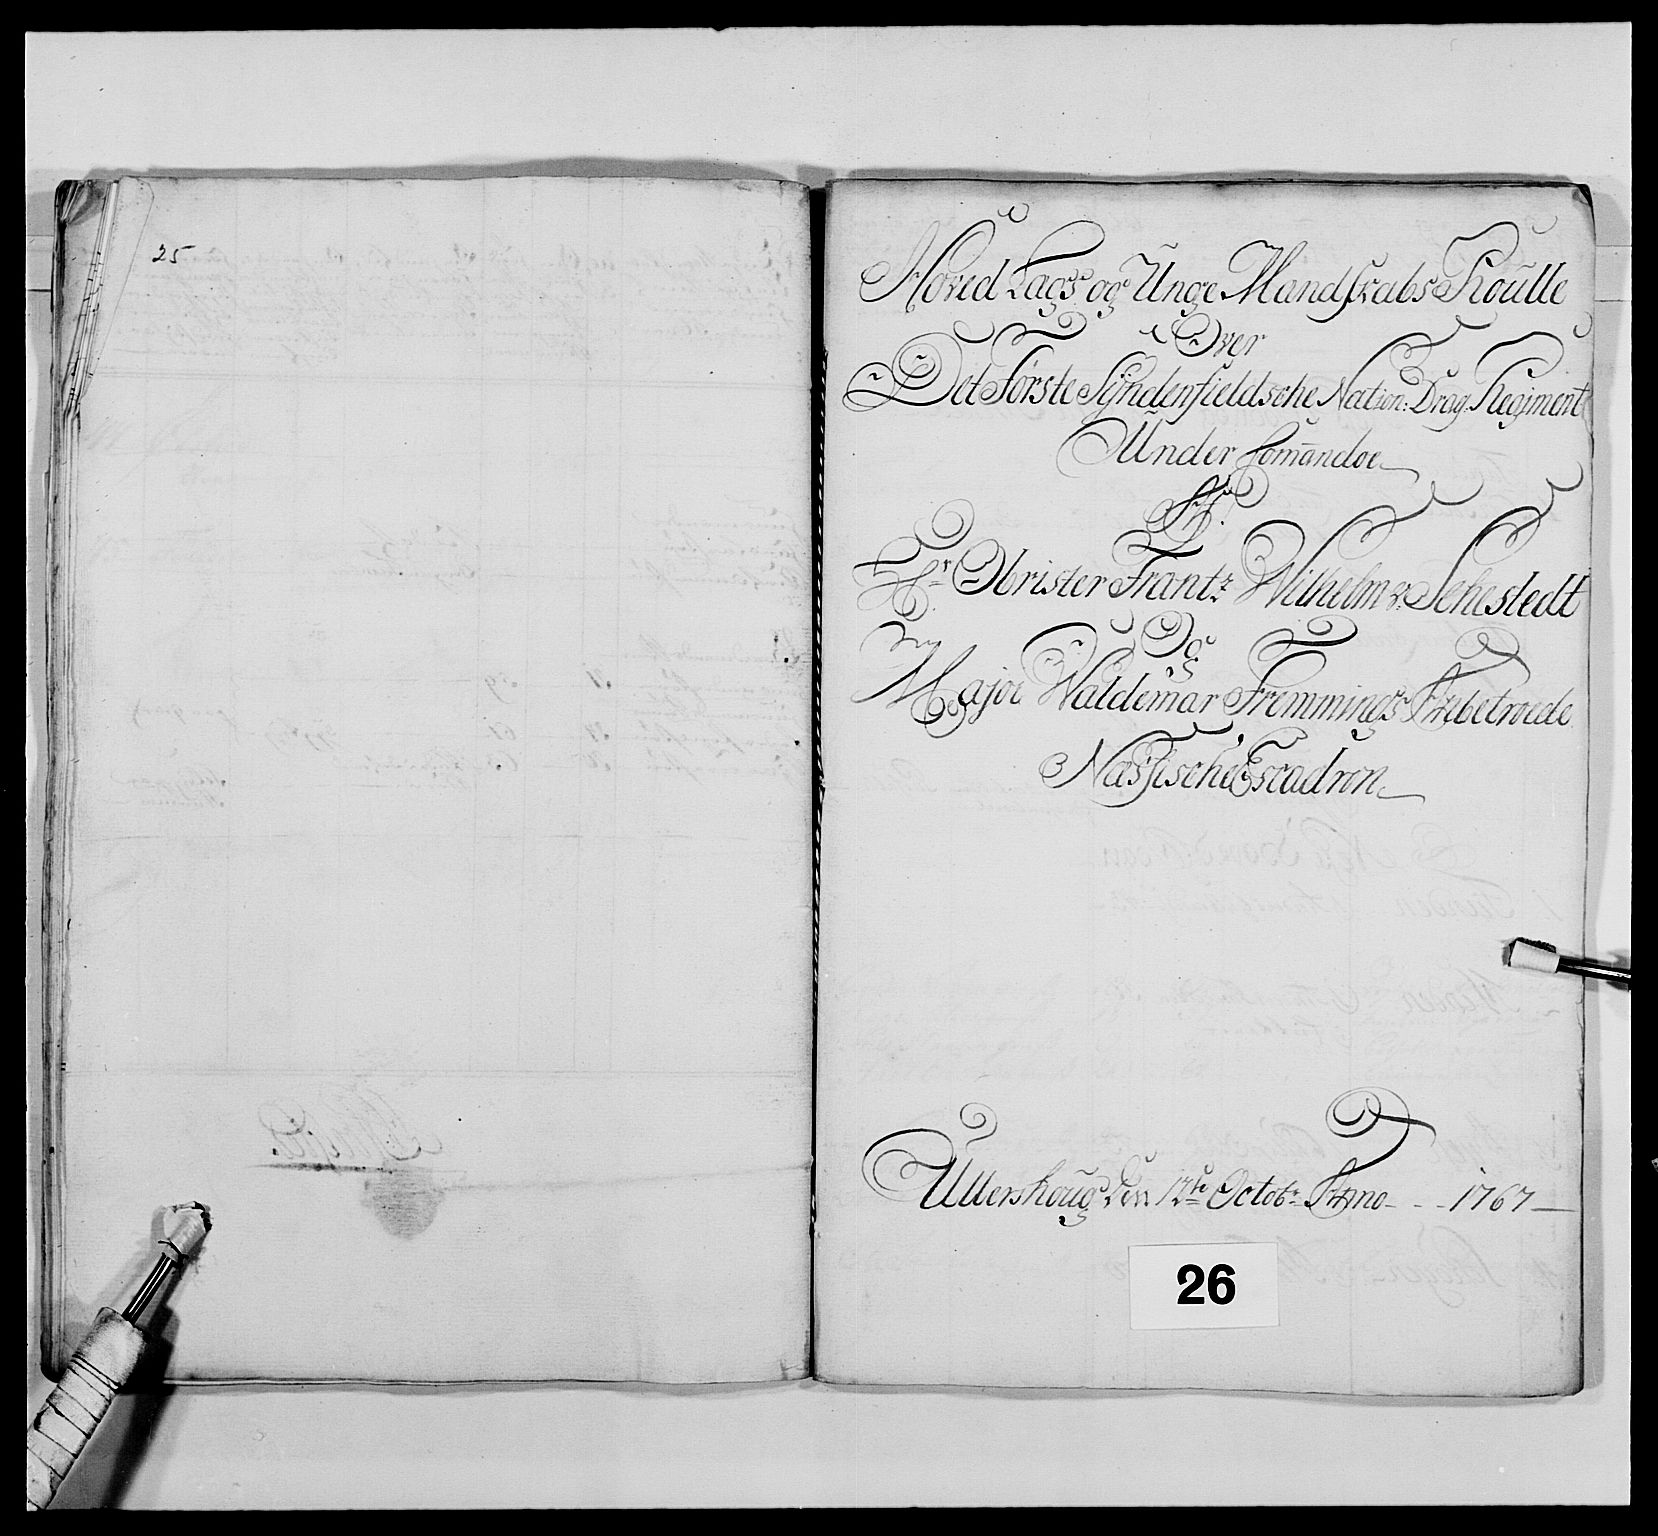 25
Hoved Lags og Unge Mandskabs Roulle
Over
Det Første Syndenfieldsche Nation: Drag: Regiment
Under Com̄andoe
Af
Hr Obrister Frantz Wilhelm v: Sehestedt
Og
Major Waldemar Fremmings Anbetroede
Næssische Escadron
Ullershoug Den 12te Octobr Anno - - - 1767
26